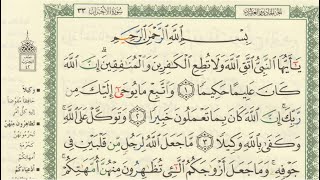 ٣٣
سُورَةُ الأَحْزَابِ
بِسْمِ اللَّهِ الرَّحْمَٰنِ الرَّحِيمِ
يَا أَيُّهَا النَّبِيُّ اتَّقِ اللَّهَ وَلَا تُطِعِ الْكَافِرِينَ وَالْمُنَافِقِينَ إِنَّ اللَّهَ
كَانَ عَلِيمًا حَكِيمًا ١ وَاتَّبِعْ مَا يُوحَىٰ إِلَيْكَ مِن
رَّبِّكَ إِنَّ اللَّهَ كَانَ بِمَا تَعْمَلُونَ خَبِيرًا ٢ وَتَوَكَّلْ عَلَى اللَّهِ
وَكَفَىٰ بِاللَّهِ وَكِيلًا ٣ مَّا جَعَلَ اللَّهُ لِرَجُلٍ مِّن قَلْبَيْنِ فِي
جَوْفِهِ وَمَا جَعَلَ أَزْوَاجَكُمُ اللَّائِي تُظَاهِرُونَ مِنْهُنَّ أُمَّهَاتِكُمْ
وَكِيلًا